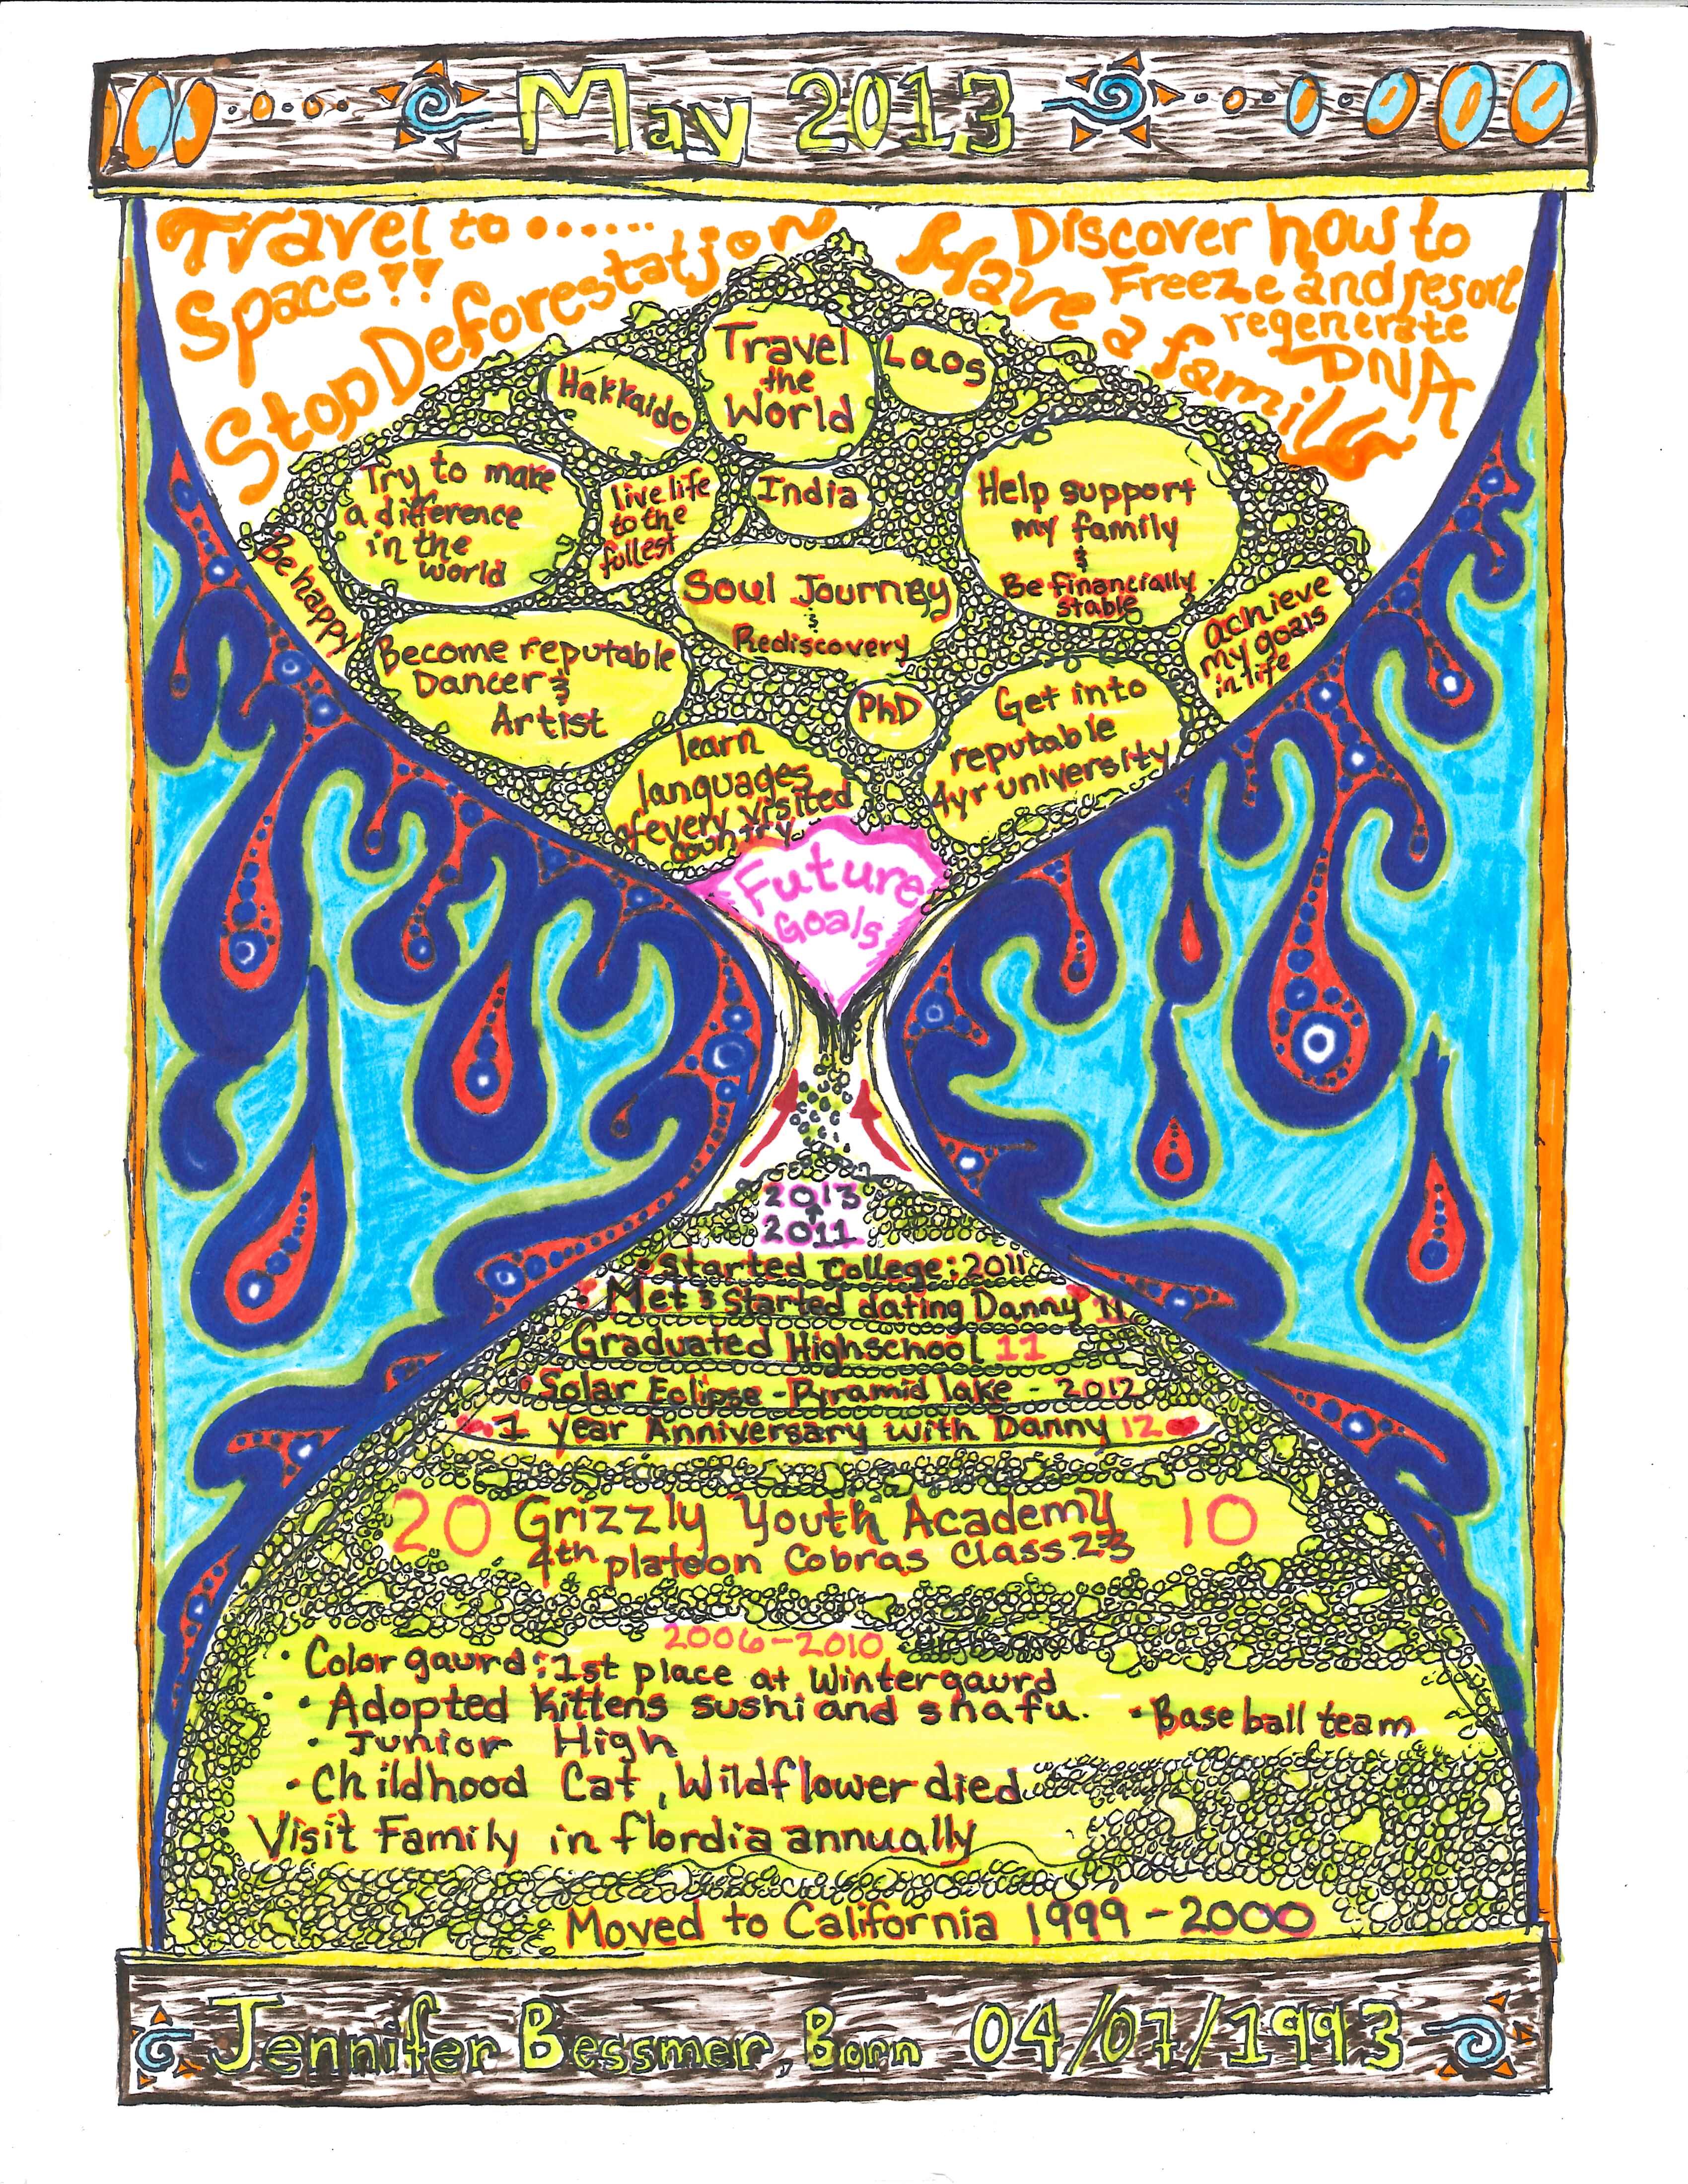 May 2013
Travel to ............
Space??
Stop Deforestation
Have a family
Discover how to
Freeze and resort
regenerate
DNA
Hakkaido
Travel
the
World
Laos
Try to make
a difference
in the
world
live life
to the
fullest
India
Help support
my family
&
Be financially
stable
be happy
Soul Journey
&
Rediscovery
achieve
my goals
in life
Become reputable
Dancer &
Artist
PhD
Get into
reputable
4yr university
learn
languages
of every visited
country
Future
Goals
2013
2011
• Started College: 2011
• Met & Started dating Danny 11
Graduated Highschool 11
• Solar Eclipse - Pyramid lake - 2012
1 year Anniversary with Danny 12
20 Grizzly Youth Academy 10
4th platoon Cobras Class 23
2006-2010
• Color gaurd: 1st place at Wintergaurd
• Adopted Kittens sushi and snafu. • Base ball team
• Junior High
• Childhood Cat, Wildflower died
Visit Family in flordia annually
Moved to California 1999 - 2000
Jennifer Bessmer, Born 04/07/1993